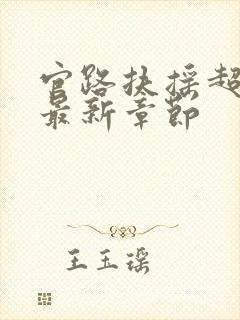 官路扶摇超
最新章节
王玉瑶